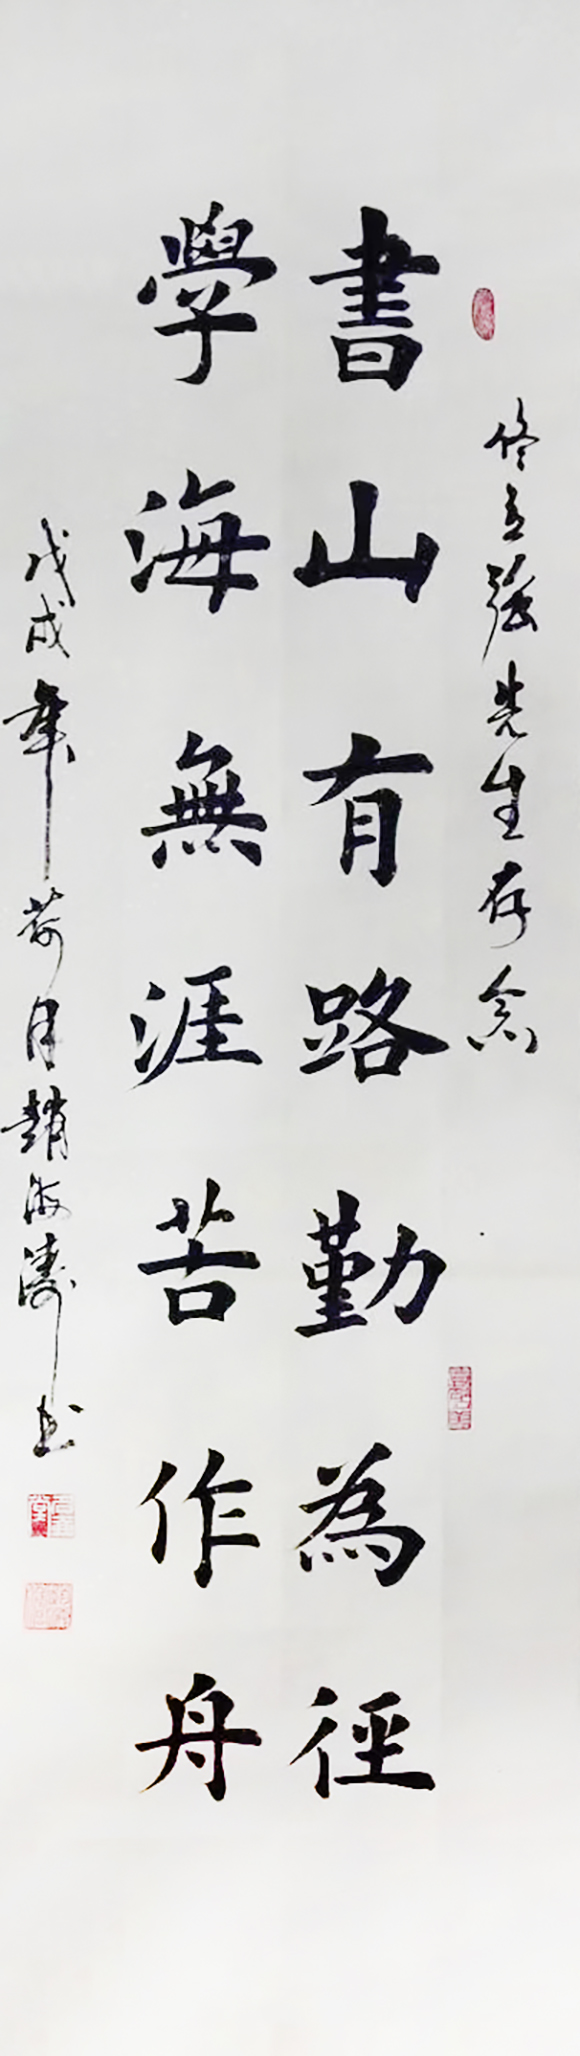 佟立強先生存念
書山有路勤為徑
學海無涯苦作舟
戊戌年荷月趙海濤书